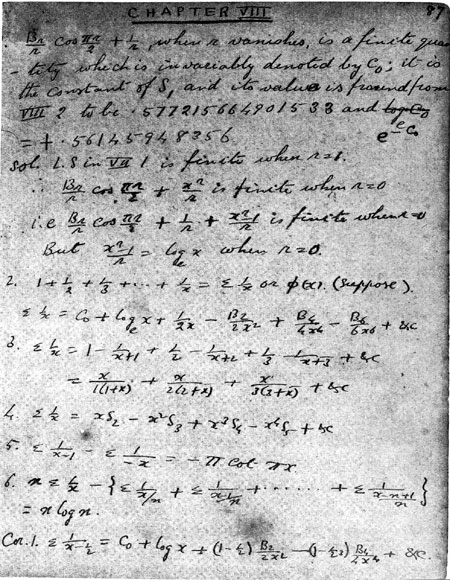 CHAPTER VIII 87
B_r/r cos πr/2 + 1/r, when r vanishes, is a finite quan
-tity which is invariably denoted by C₀; it is
the constant of S₁ and its value is found from
VIII 2 to be .577215664901533 and log C₀
e^-C₀
= .56145948356
Sol. I. S in VII 1 is finite when r=1.
∴ B_r/r cos πr/2 + x^r/r is finite when r=0
i.e B_r/r cos πr/2 + 1/r + (x^r-1)/r is finite when r=0
But (x^r-1)/r = log_e x when r=0.
2. 1 + 1/2 + 1/3 + ... + 1/x = Σ 1/x or φ(x). (suppose).
Σ 1/x = C₀ + log_e x + 1/2x - B₂/2x² + B₄/4x⁴ - B₆/6x⁶ + &c
3. Σ 1/x = 1 - 1/(x+1) + 1/2 - 1/(x+2) + 1/3 - 1/(x+3) + &c
= x/1(1+x) + x/2(2+x) + x/3(3+x) + &c
4. Σ 1/x = xS₂ - x²S₃ + x³S₄ - x⁴S₅ + &c
5. Σ 1/(x-1) - Σ 1/-x = -π cot πx
6. n Σ 1/x - {Σ 1/(x/n) + Σ 1/((x-1)/n) + ...... + Σ 1/((x-n+1)/n)}
= n log n.
Cor. 1. Σ 1/(x-½) = C₀ + log x + (1-½) B₂/2x² - (1-1/2³) B₄/4x⁴ + &c.